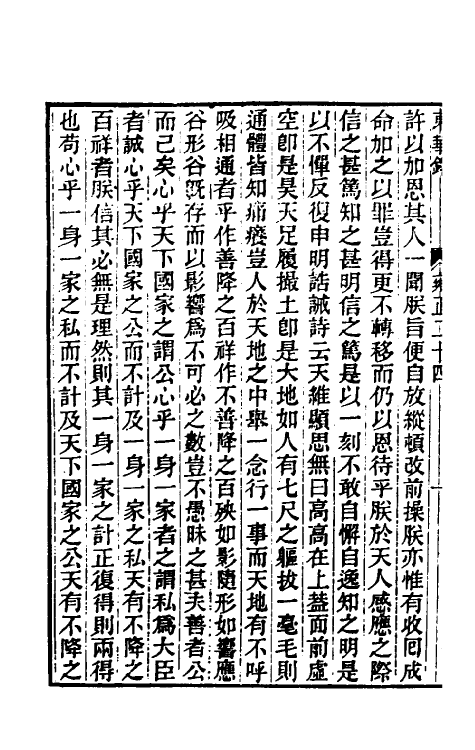 東華錄 雍正二十四 一
許以加恩其人一聞朕旨便自放縱頓改前操朕亦惟有收囘成
命加之以罪豈得更不轉移而仍以恩待乎朕於天人感應之際
信之甚篤知之甚明信之篤是以一刻不敢自懈自逸知之明是
以不憚反復申明誥誡詩云天維顯思無曰高高在上葢面前虛
空卽是昊天足履撮土卽是大地如人有七尺之軀拔一毫毛則
通體皆知痛癢豈人於天地之中舉一念行一事而天地有不呼
吸相通者乎作善降之百祥作不善降之百殃如影隨形如響應
谷形谷旣存而以影響爲不可必之數豈不愚昧之甚夫善者公
而己矣心乎天下國家之謂公心乎一身一家者之謂私爲大臣
者誠心乎天下國家之公而不計及一身一家之私天有不降之
百祥者朕信其必無是理然則其一身一家之計正復得則兩得
也苟心乎一身一家之私而不計及天下國家之公天有不降之